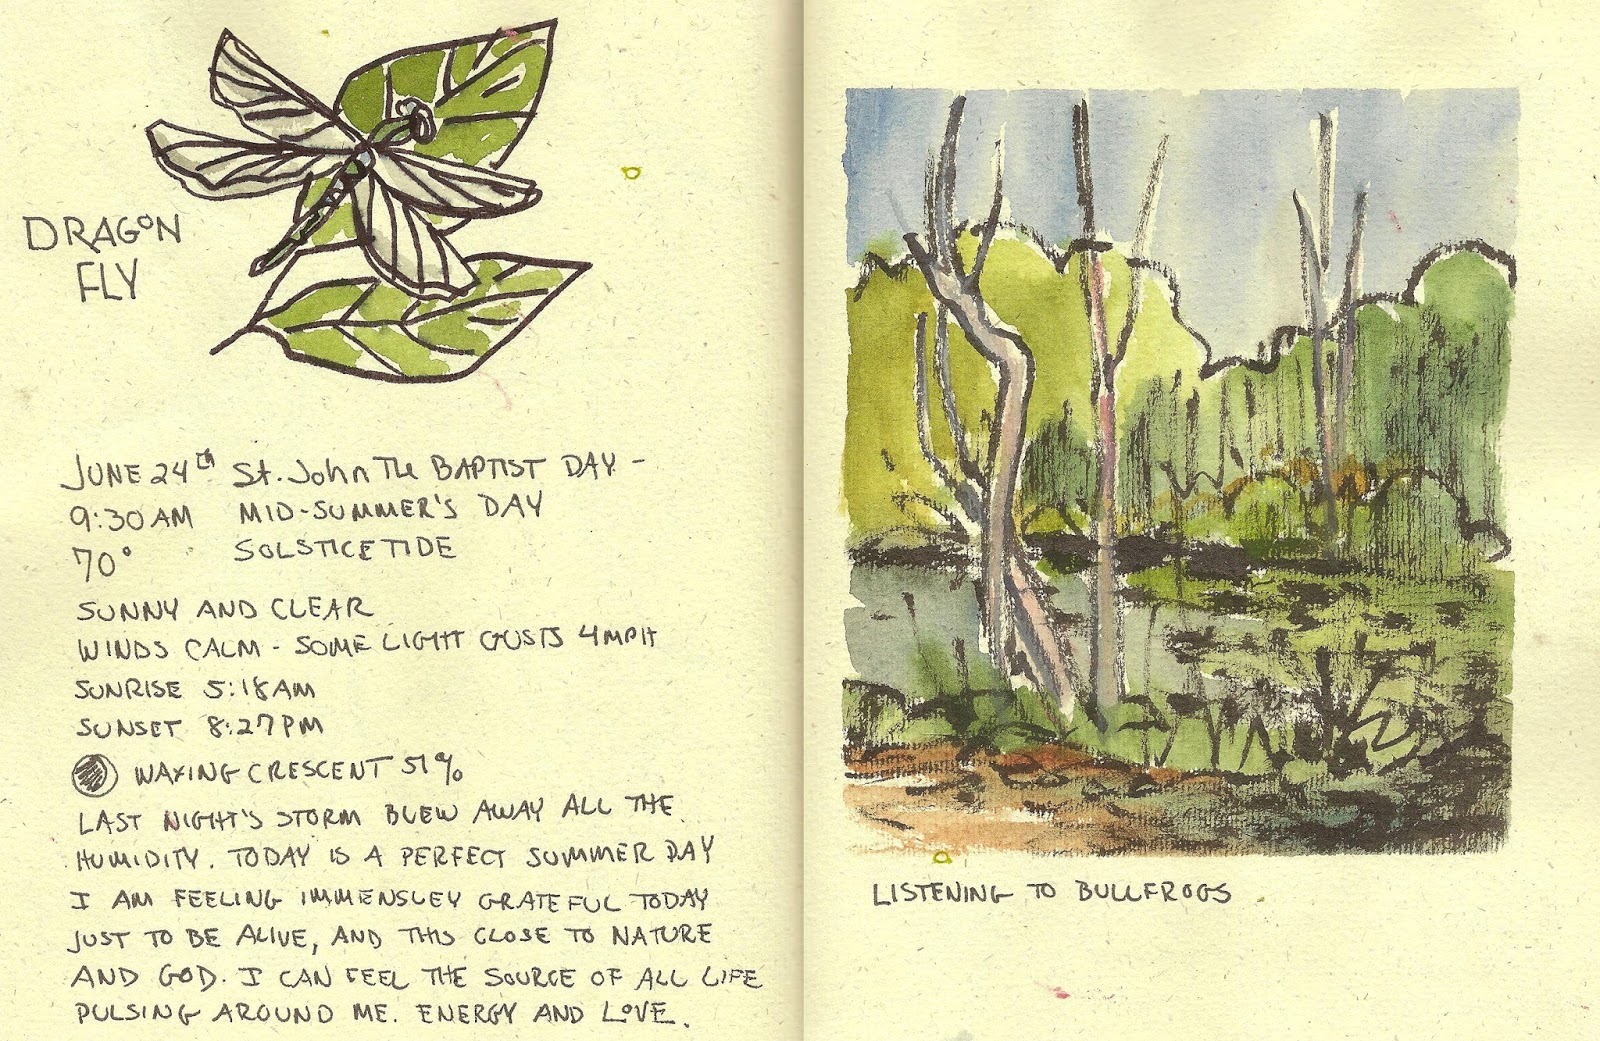 DRAGON
FLY
JUNE 24th St. John The BAPTIST DAY -
9:30 AM MID-SUMMER'S DAY
70° SOLSTICE TIDE
SUNNY AND CLEAR
WINDS CALM - SOME LIGHT GUSTS 4MPH
SUNRISE 5:18AM
SUNSET 8:27PM
WAXING CRESCENT 51%
LAST NIGHT'S STORM BLEW AWAY ALL THE
HUMIDITY. TODAY IS A PERFECT SUMMER DAY
I AM FEELING IMMENSLEY GRATEFUL TODAY
JUST TO BE ALIVE, AND THIS CLOSE TO NATURE
AND GOD. I CAN FEEL THE SOURCE OF ALL LIFE
PULSING AROUND ME. ENERGY AND LOVE.
LISTENING TO BULLFROGS